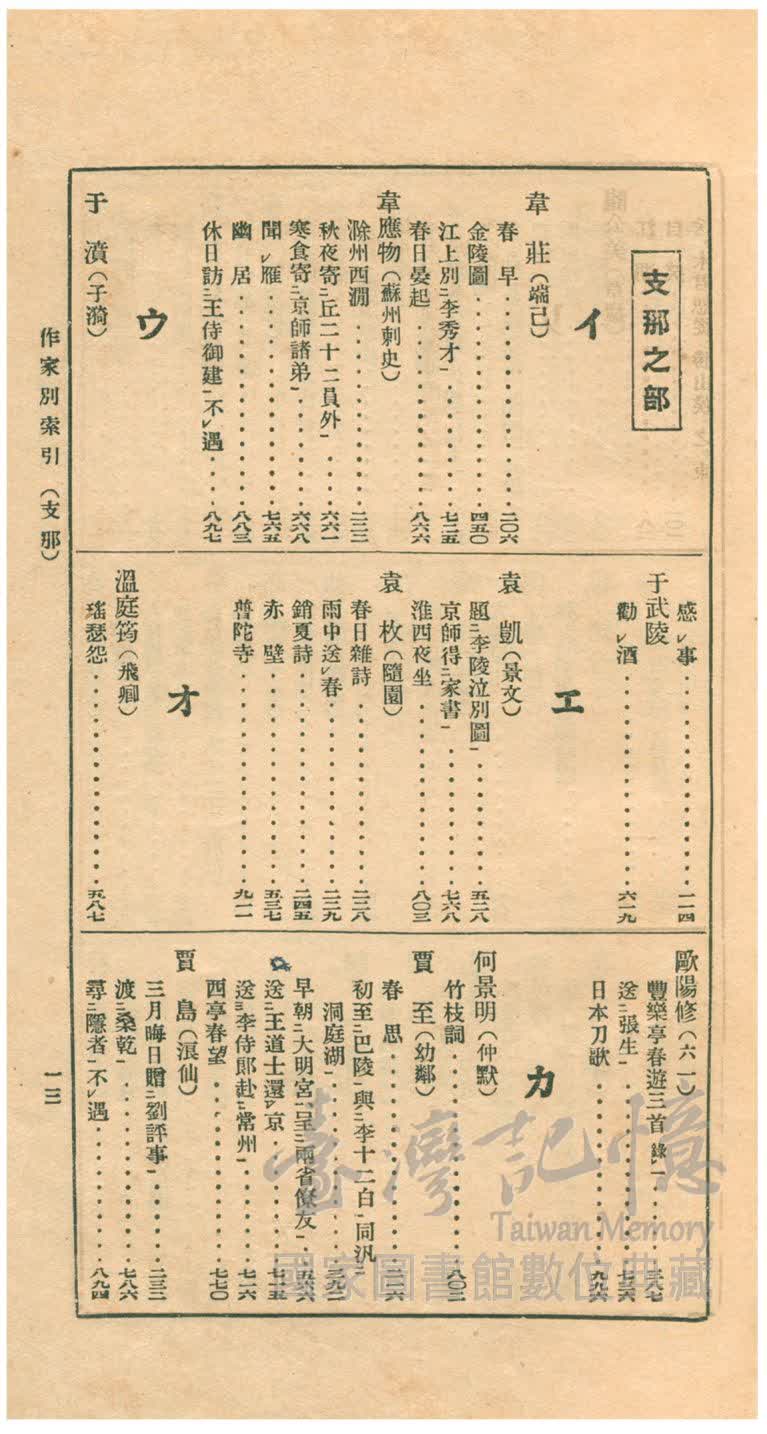 支那之部
イ
韋 莊(端己)
春 早・・・・・・・・・・・・二〇六
金陵圖・・・・・・・・・・・・四五〇
江上別ニ李秀才一・・・・・・・・七二五
春日晏起・・・・・・・・・・・八六六
韋應物(蘇州刺史)
滁州西澗・・・・・・・・・・・二二二
秋夜寄ニ丘二十二員外一・・・・・六六一
寒食寄ニ京師諸弟一・・・・・・・六六八
聞レ雁・・・・・・・・・・・・七六五
幽 居・・・・・・・・・・・・八八三
休日訪ニ王侍御建一不レ遇・・・・八九七
ウ
于 濆(子漪)
感レ事・・・・・・・・・・・・一一四
于武陵
勸レ酒・・・・・・・・・・・・六一九
エ
袁 凱(景文)
題ニ李陵泣別圖一・・・・・・・・五二八
京師得ニ家書一・・・・・・・・・七六八
淮西夜坐・・・・・・・・・・・八〇三
袁 枚(隨園)
春日雜詩・・・・・・・・・・・二二八
雨中送レ春・・・・・・・・・・二三九
銷夏詩・・・・・・・・・・・・二四五
赤 壁・・・・・・・・・・・・五三七
普陀寺・・・・・・・・・・・・九一一
オ
溫庭筠(飛卿)
瑤瑟怨・・・・・・・・・・・・五八七
歐陽修(六一)
豐樂亭春遊三首 錄レ一・・・・・
送ニ張生一・・・・・・・・・・・
日本刀歌・・・・・・・・・・・九九六
カ
何景明(仲默)
竹枝詞・・・・・・・・・・・・八〇二
賈 至(幼鄰)
春 思・・・・・・・・・・・・
初至ニ巴陵一與ニ李十二白一同汎ニ
洞庭湖一・・・・・・・・・・・
早朝ニ大明宮一呈ニ兩省僚友一・・
送ニ王道士還レ京・・・・・・・・七一五
送三李侍郎赴ニ常州一・・・・・・七一六
西亭春望・・・・・・・・・・・七七〇
賈 島(浪仙)
三月晦日贈ニ劉評事一・・・・・・二三二
渡ニ桑乾一・・・・・・・・・・・七八六
尋ニ隱者一不レ遇・・・・・・・・八九四
作家別索引(支那)
一三
臺灣記憶
Taiwan Memory
國家圖書館數位典藏